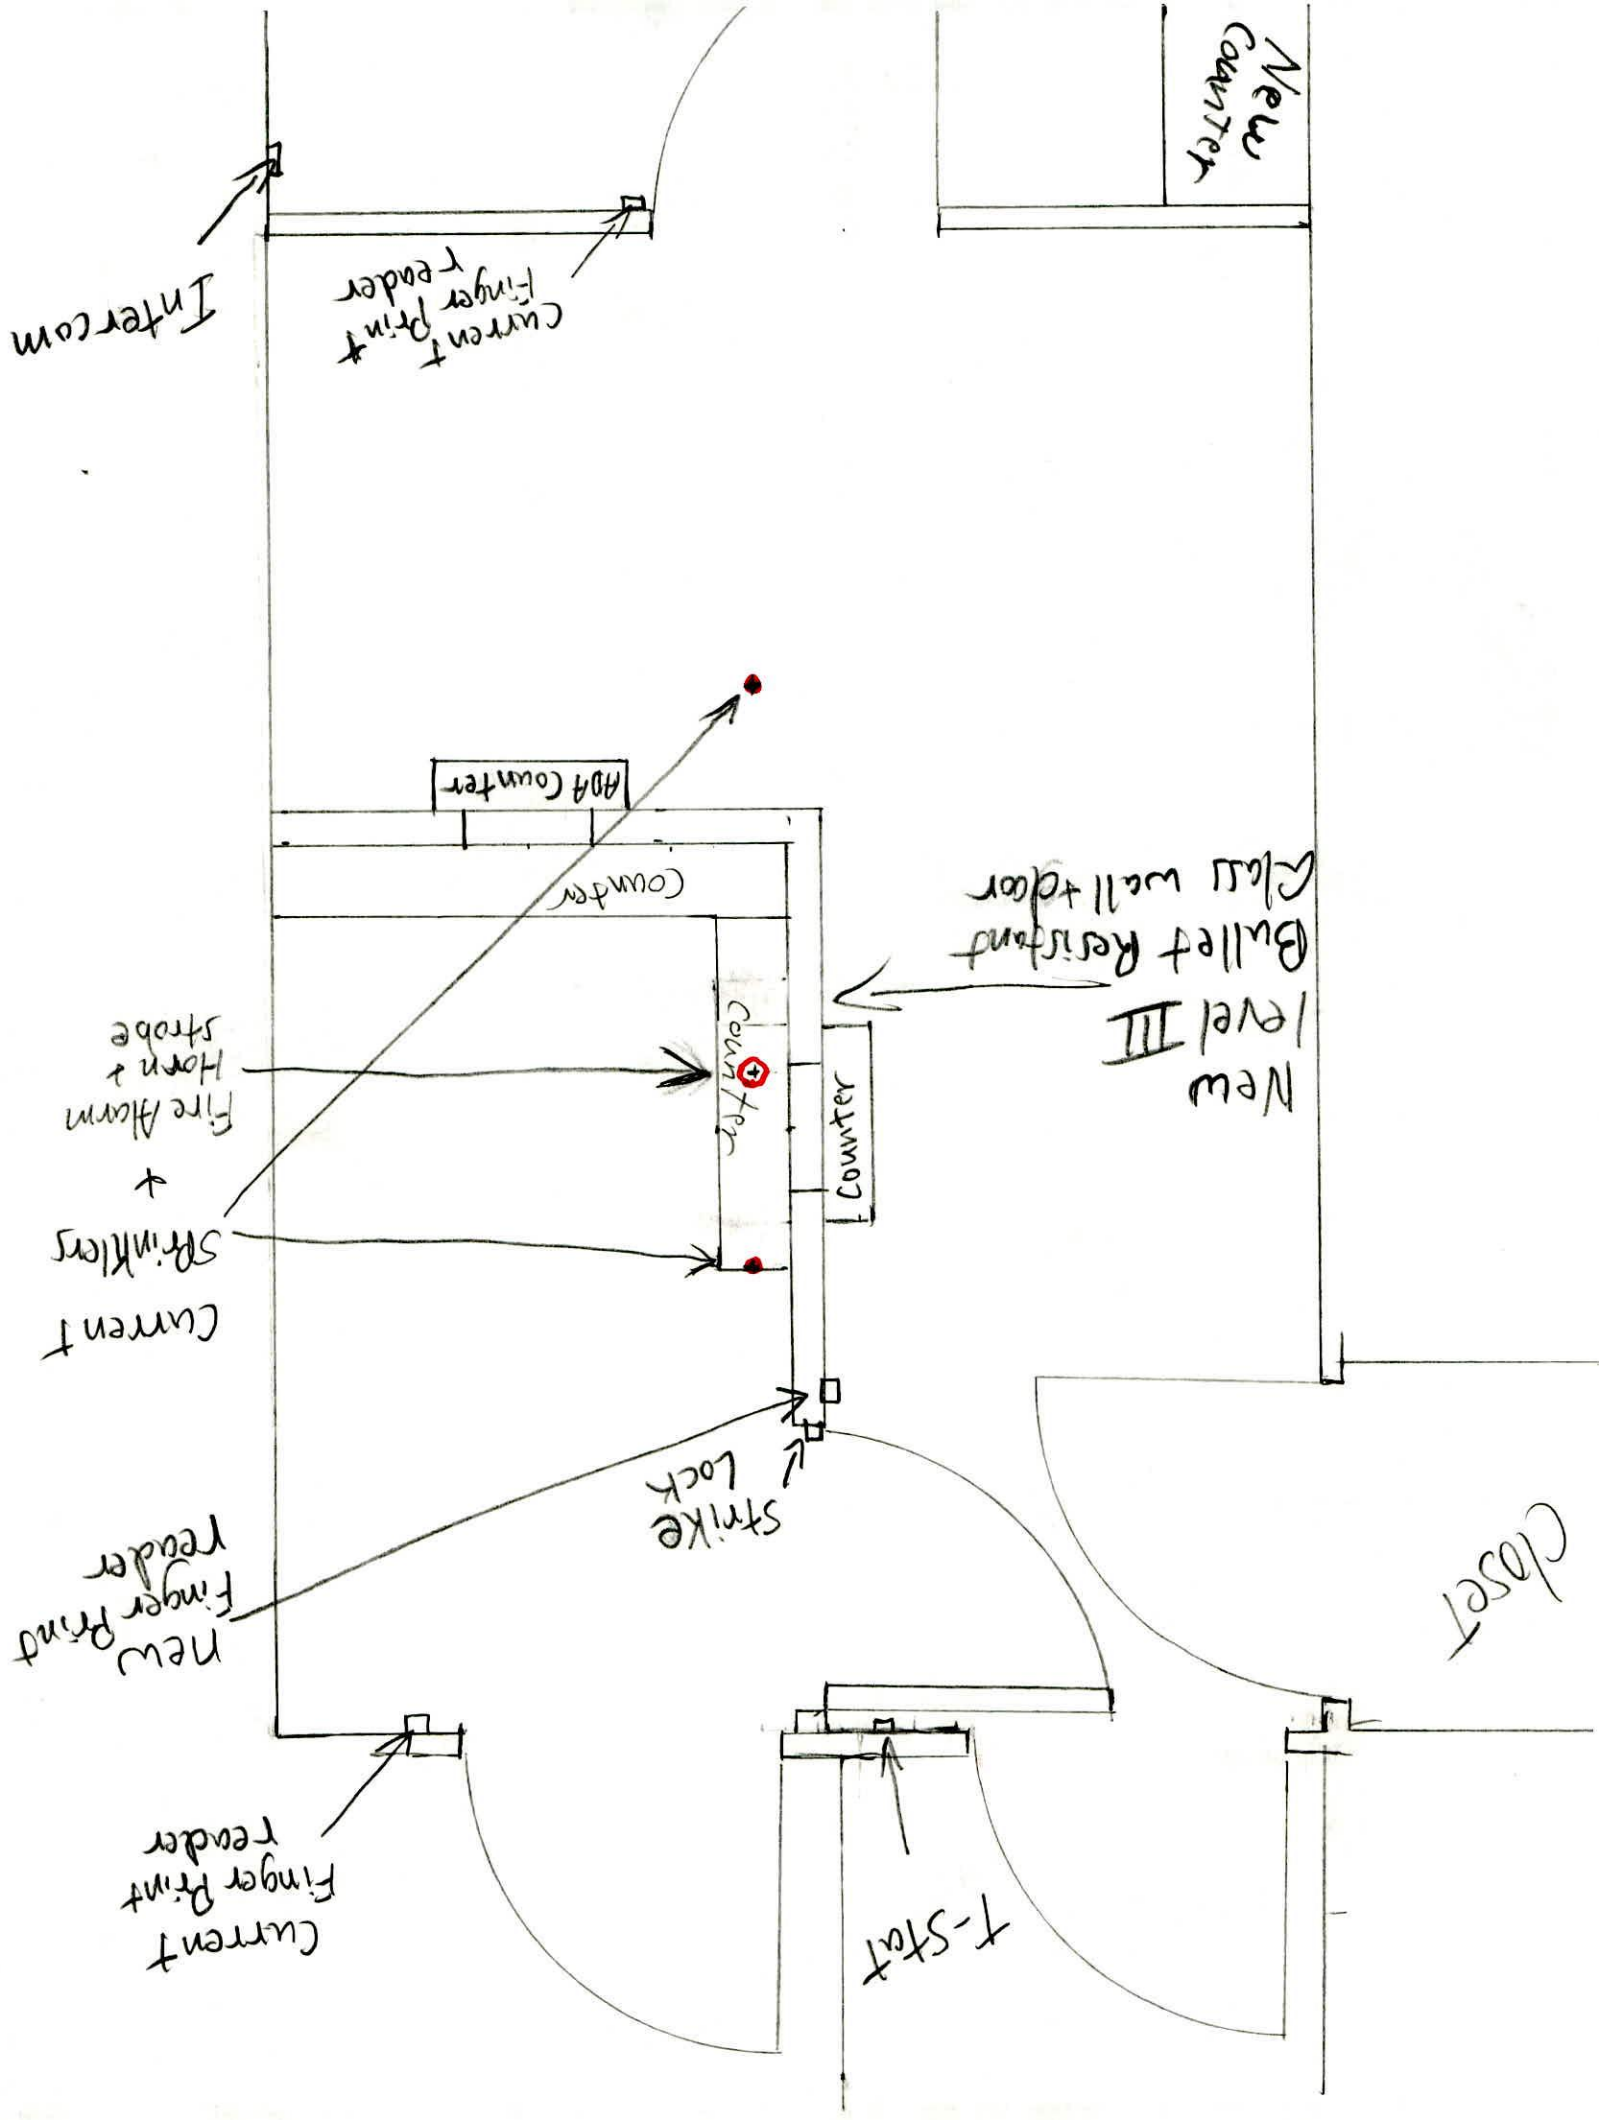 New
Counter
Intercom
Current
Finger Print
reader
ADA Counter
Counter
Counter
Counter
New
level III
Bullet Resistant
Glass wall + door
Current
Sprinklers
+
Fire Alarm
Horn +
strobe
Strike
Lock
new
Finger Print
reader
Closet
Current
Finger Print
reader
T-Stat